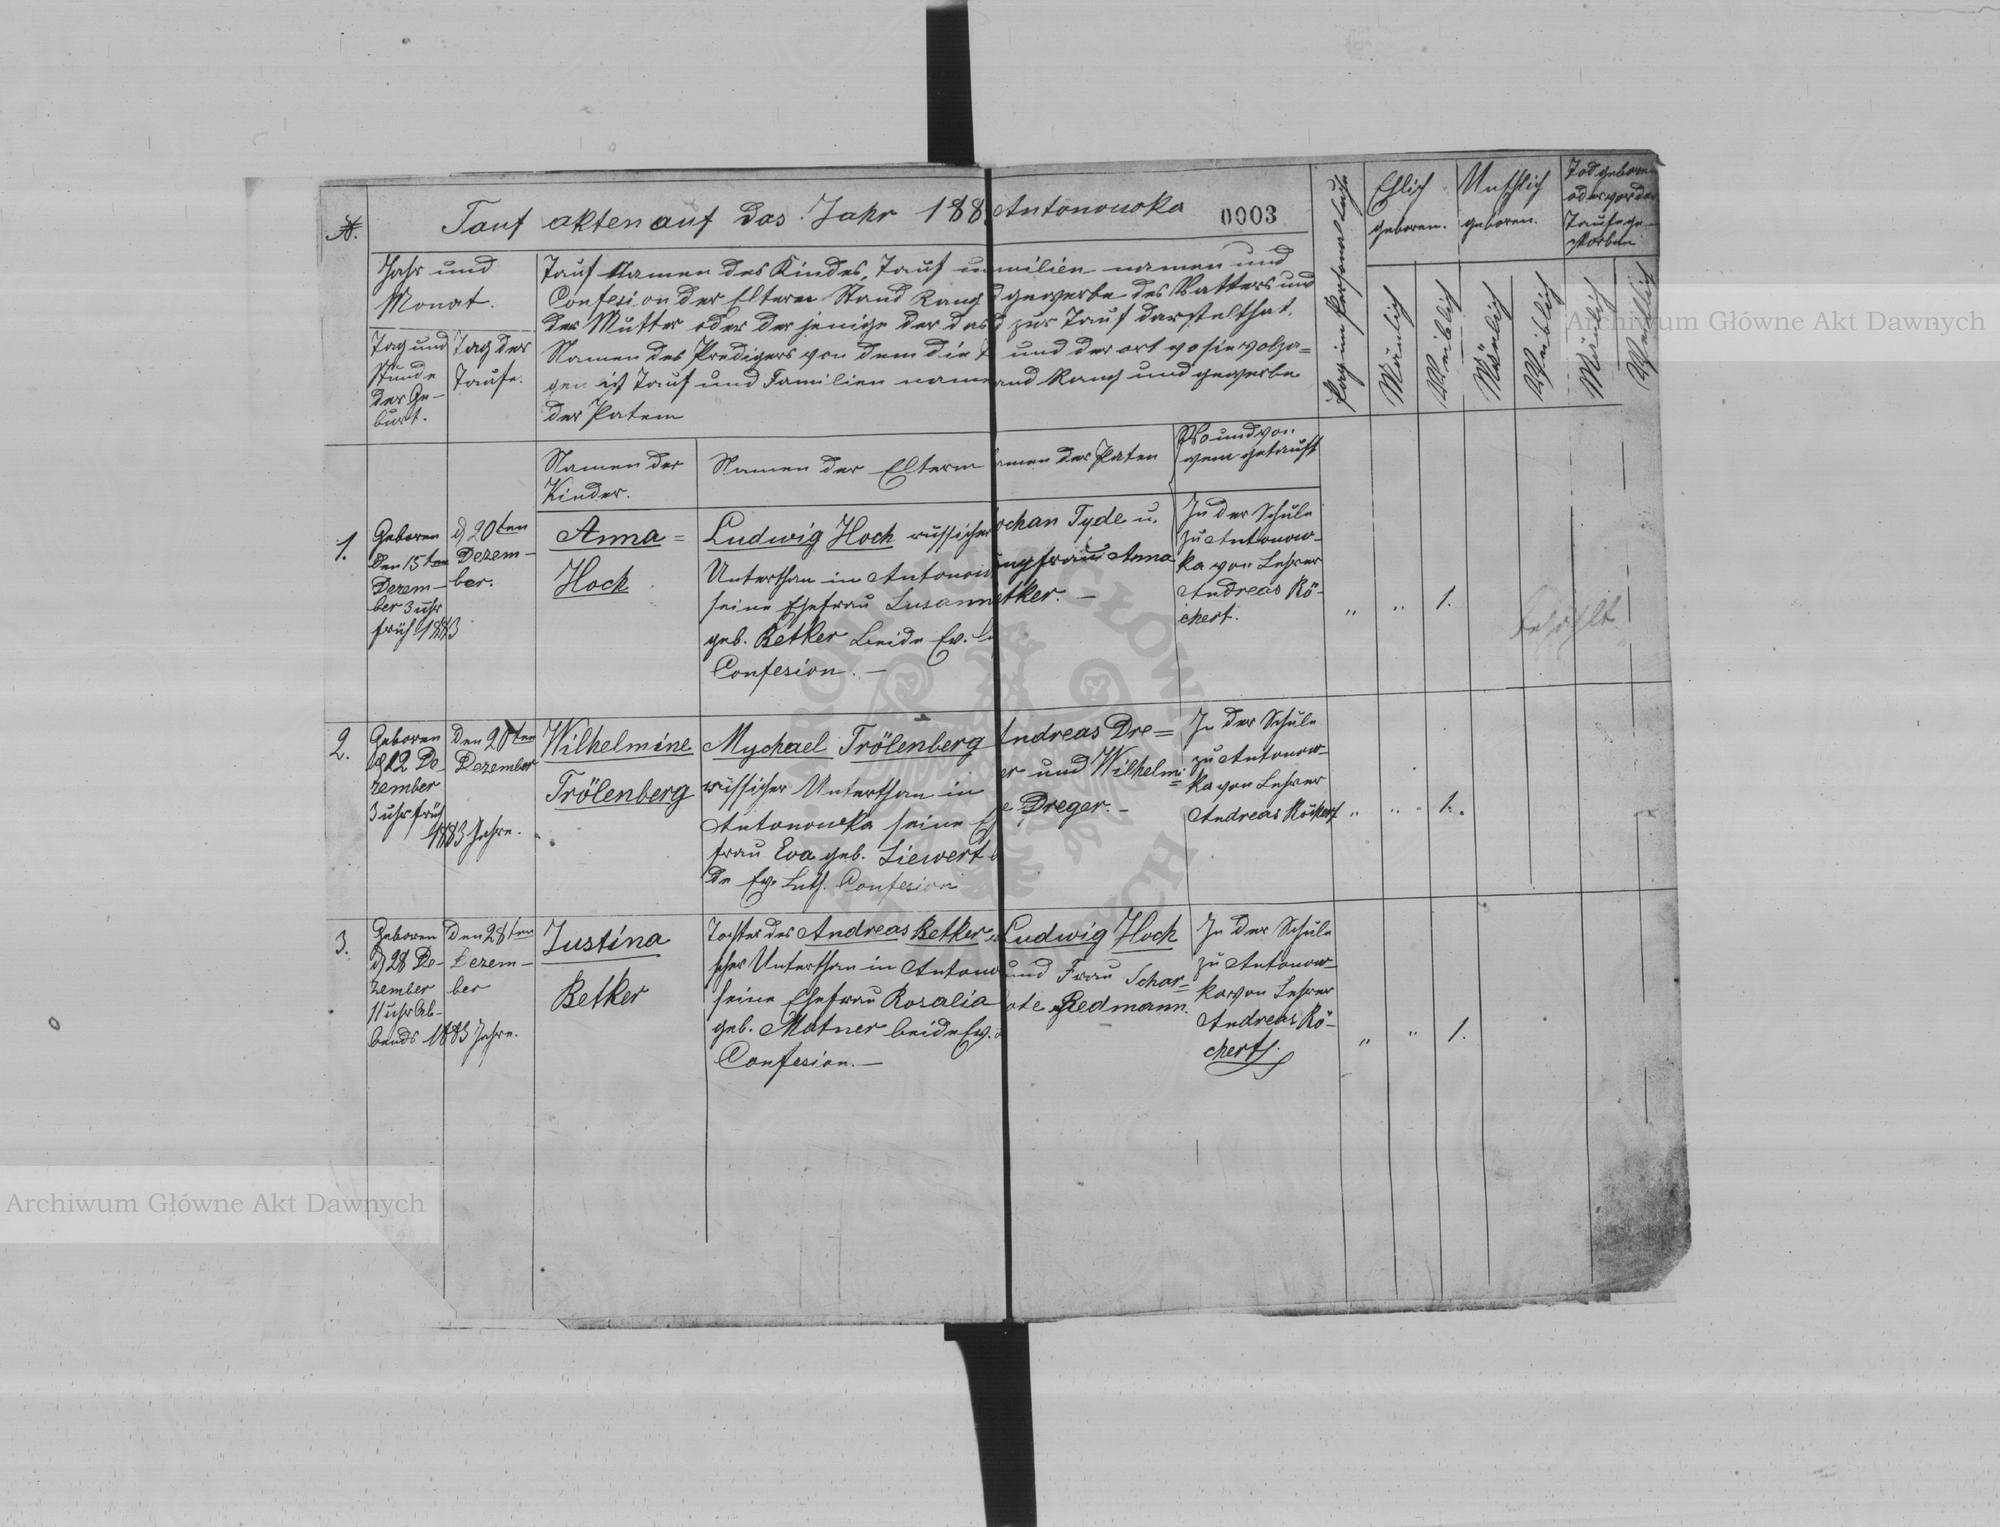 №.
Tauf akten auf das Jahr 188
Antonowka
0003
Jahr und
Monat.
Tag und
Stunde
der Ge-
burt.
Tag der
Taufe.
Tauf Namen des Kindes, Tauf u milien namen und
Confesion der Eltern Stand Rang d gewerbe des Vatters und
der Mutter oder der jenige der das d zur Tauf darstelthat.
Namen des Predigers von dem die T und der ort wo sie volza=
gen ist Tauf und Familien name und Rang und gewerbe
der Patem
Pag im Personal buch
Ehlich
geboren.
Unehlich
geboren.
Todgeboren
oder vor der
Taufe ge-
storben
Mänlich
Weiblich
Mänlich
Weiblich
Mänlich
Weiblich
Namen der
Kinder.
Namen der Elterm
amen der Paten
Wo und von
wem getauft
1.
Geboren
den 15ten
Dezem-
ber 3 uhr
früh 1883
d 20ten
Dezem-
ber.
Anna =
Hoch
Ludwig Hoch russischer
Unterthan in Antonow
seine Ehefrau Susann
geb. Betker beide Ev. Lu
Confesion. —
ochan Tyde u.
ungfrau Anna
etker. —
In der Schule
zu Antonow-
ka von Lehrer
Andreas Rö-
chert.
" " 1.
bezahlt
2.
Geboren
d 12 De-
zember
3 uhr früh
1883 Jahre.
Den 20ten
Dezember
Wilhelmine
Trölenberg
Mychael Trölenberg
russicher Unterthan in
Antonowka seine Eh
frau Eva geb. Siewert b
de Ev. Luth. Confesion
Andreas Dre=
er und Wilhelmi=
e Dreger. —
In der Schule
zu Antonow-
ka von Lehrer
Andreas Röchert
" " 1.
3.
Geboren
d 28 De-
zember
11 uhr Ab-
bends 1883 Jahre.
Den 28ten
Dezem-
ber
Justina
Betker
Tochter des Andreas Betker
scher Unterthan in Antono
seine Ehefrau Rosalia
geb. Matner beide Ev.
Confesion. —
Ludwig Hoch
und Frau Schar=
ote Redmann.
In der Schule
zu Antonow-
ka von Lehrer
Andreas Rö-
chert.
" " 1.
Archiwum Główne Akt Dawnych
Archiwum Główne Akt Dawnych